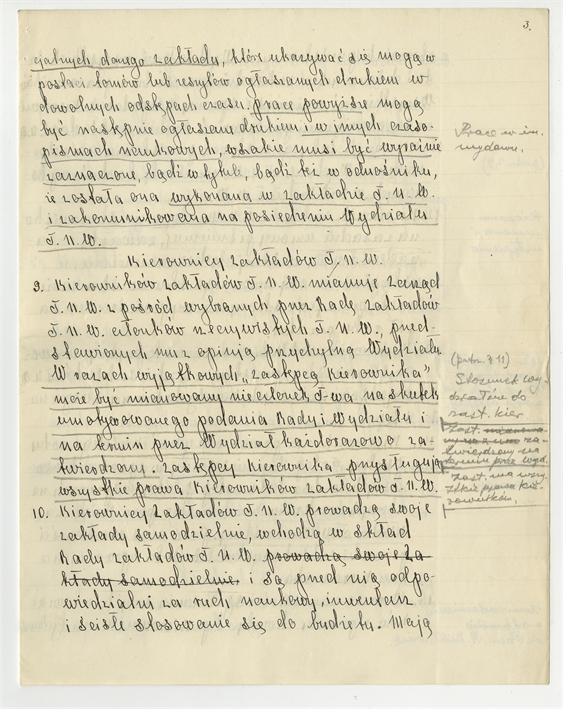 3.
cjalnych danego zakładu, które ukazywać się mogą w
postaci tomów lub zeszytów ogłaszanych drukiem w
dowolnych odstępach czasu. Prace powyższe mogą
być następnie ogłaszane drukiem i w innych czaso-
pismach naukowych, wszakże musi być wyraźnie
zaznaczone, bądź w tytule, bądź też w odnośniku,
że została ona wykonana w zakładzie T.N.W.
i zakomunikowana na posiedzeniu Wydziału
T.N.W.
Prace w in.
wydawn.
Kierownicy Zakładów T.N.W.
9. Kierowników Zakładów T.N.W. mianuje Zarząd
T.N.W. z pośród wybranych przez Radę Zakładów
T.N.W. członków rzeczywistych T.N.W., przed-
stawionych mu z opinją przychylną Wydziału
W razach wyjątkowych „Zastępcą Kierownika"
może być mianowany nieczłonek T-wa na skutek
umotywowanego podania Rady i Wydziału i
na termin przez Wydział każdorazowo za-
twierdzony. Zastępcy Kierownika przysługują
wszystkie prawa Kierowników Zakładów T.N.W.
(patrz § 11)
Stosunek wy-
działów do
zast. kier.
Zast. mianowa-
za-
twierdzony na
termin przez wydz.
Zast. ma wszy-
stkie prawa kie-
rowników.
10. Kierownicy Zakładów T.N.W. prowadzą swoje
zakłady samodzielnie, wchodzą w skład
Rady Zakładów T.N.W. prowadzą swoje za-
kłady samodzielnie i są przed nią odpo-
wiedzialni za ruch naukowy, inwentarz
i ścisłe stosowanie się do budżetu. Mają